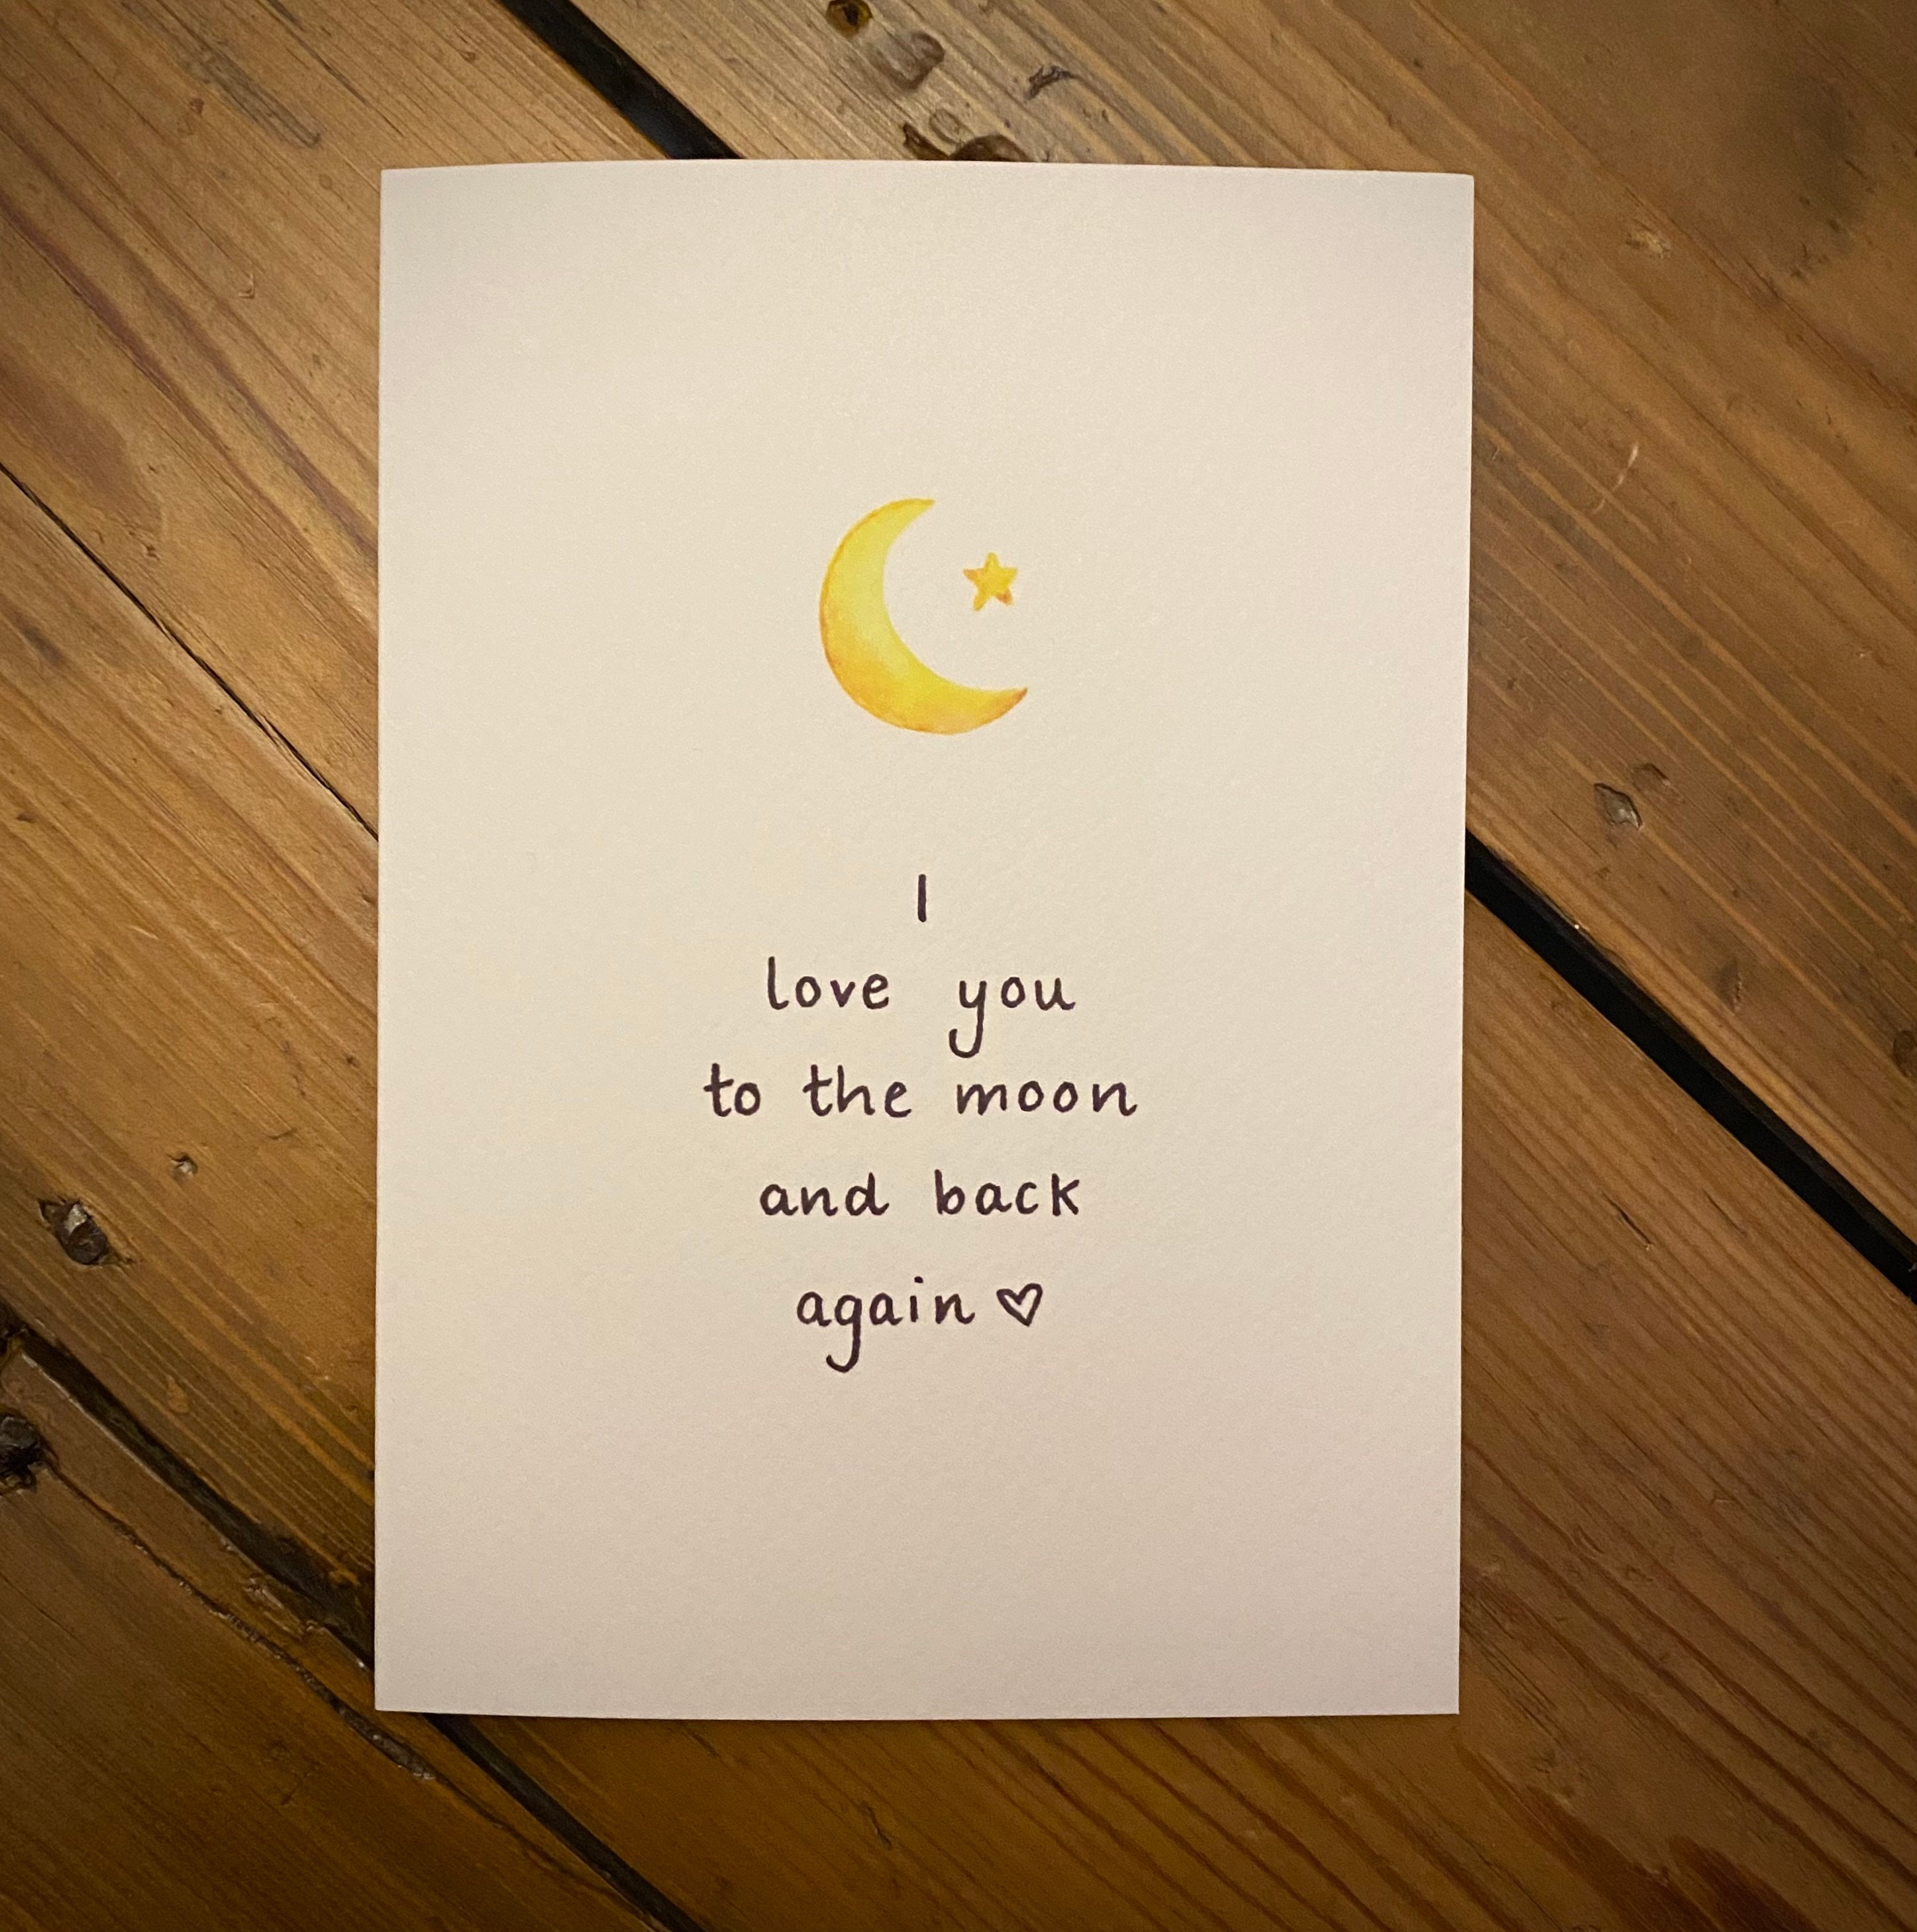 I
love you
to the moon
and back
again ♡